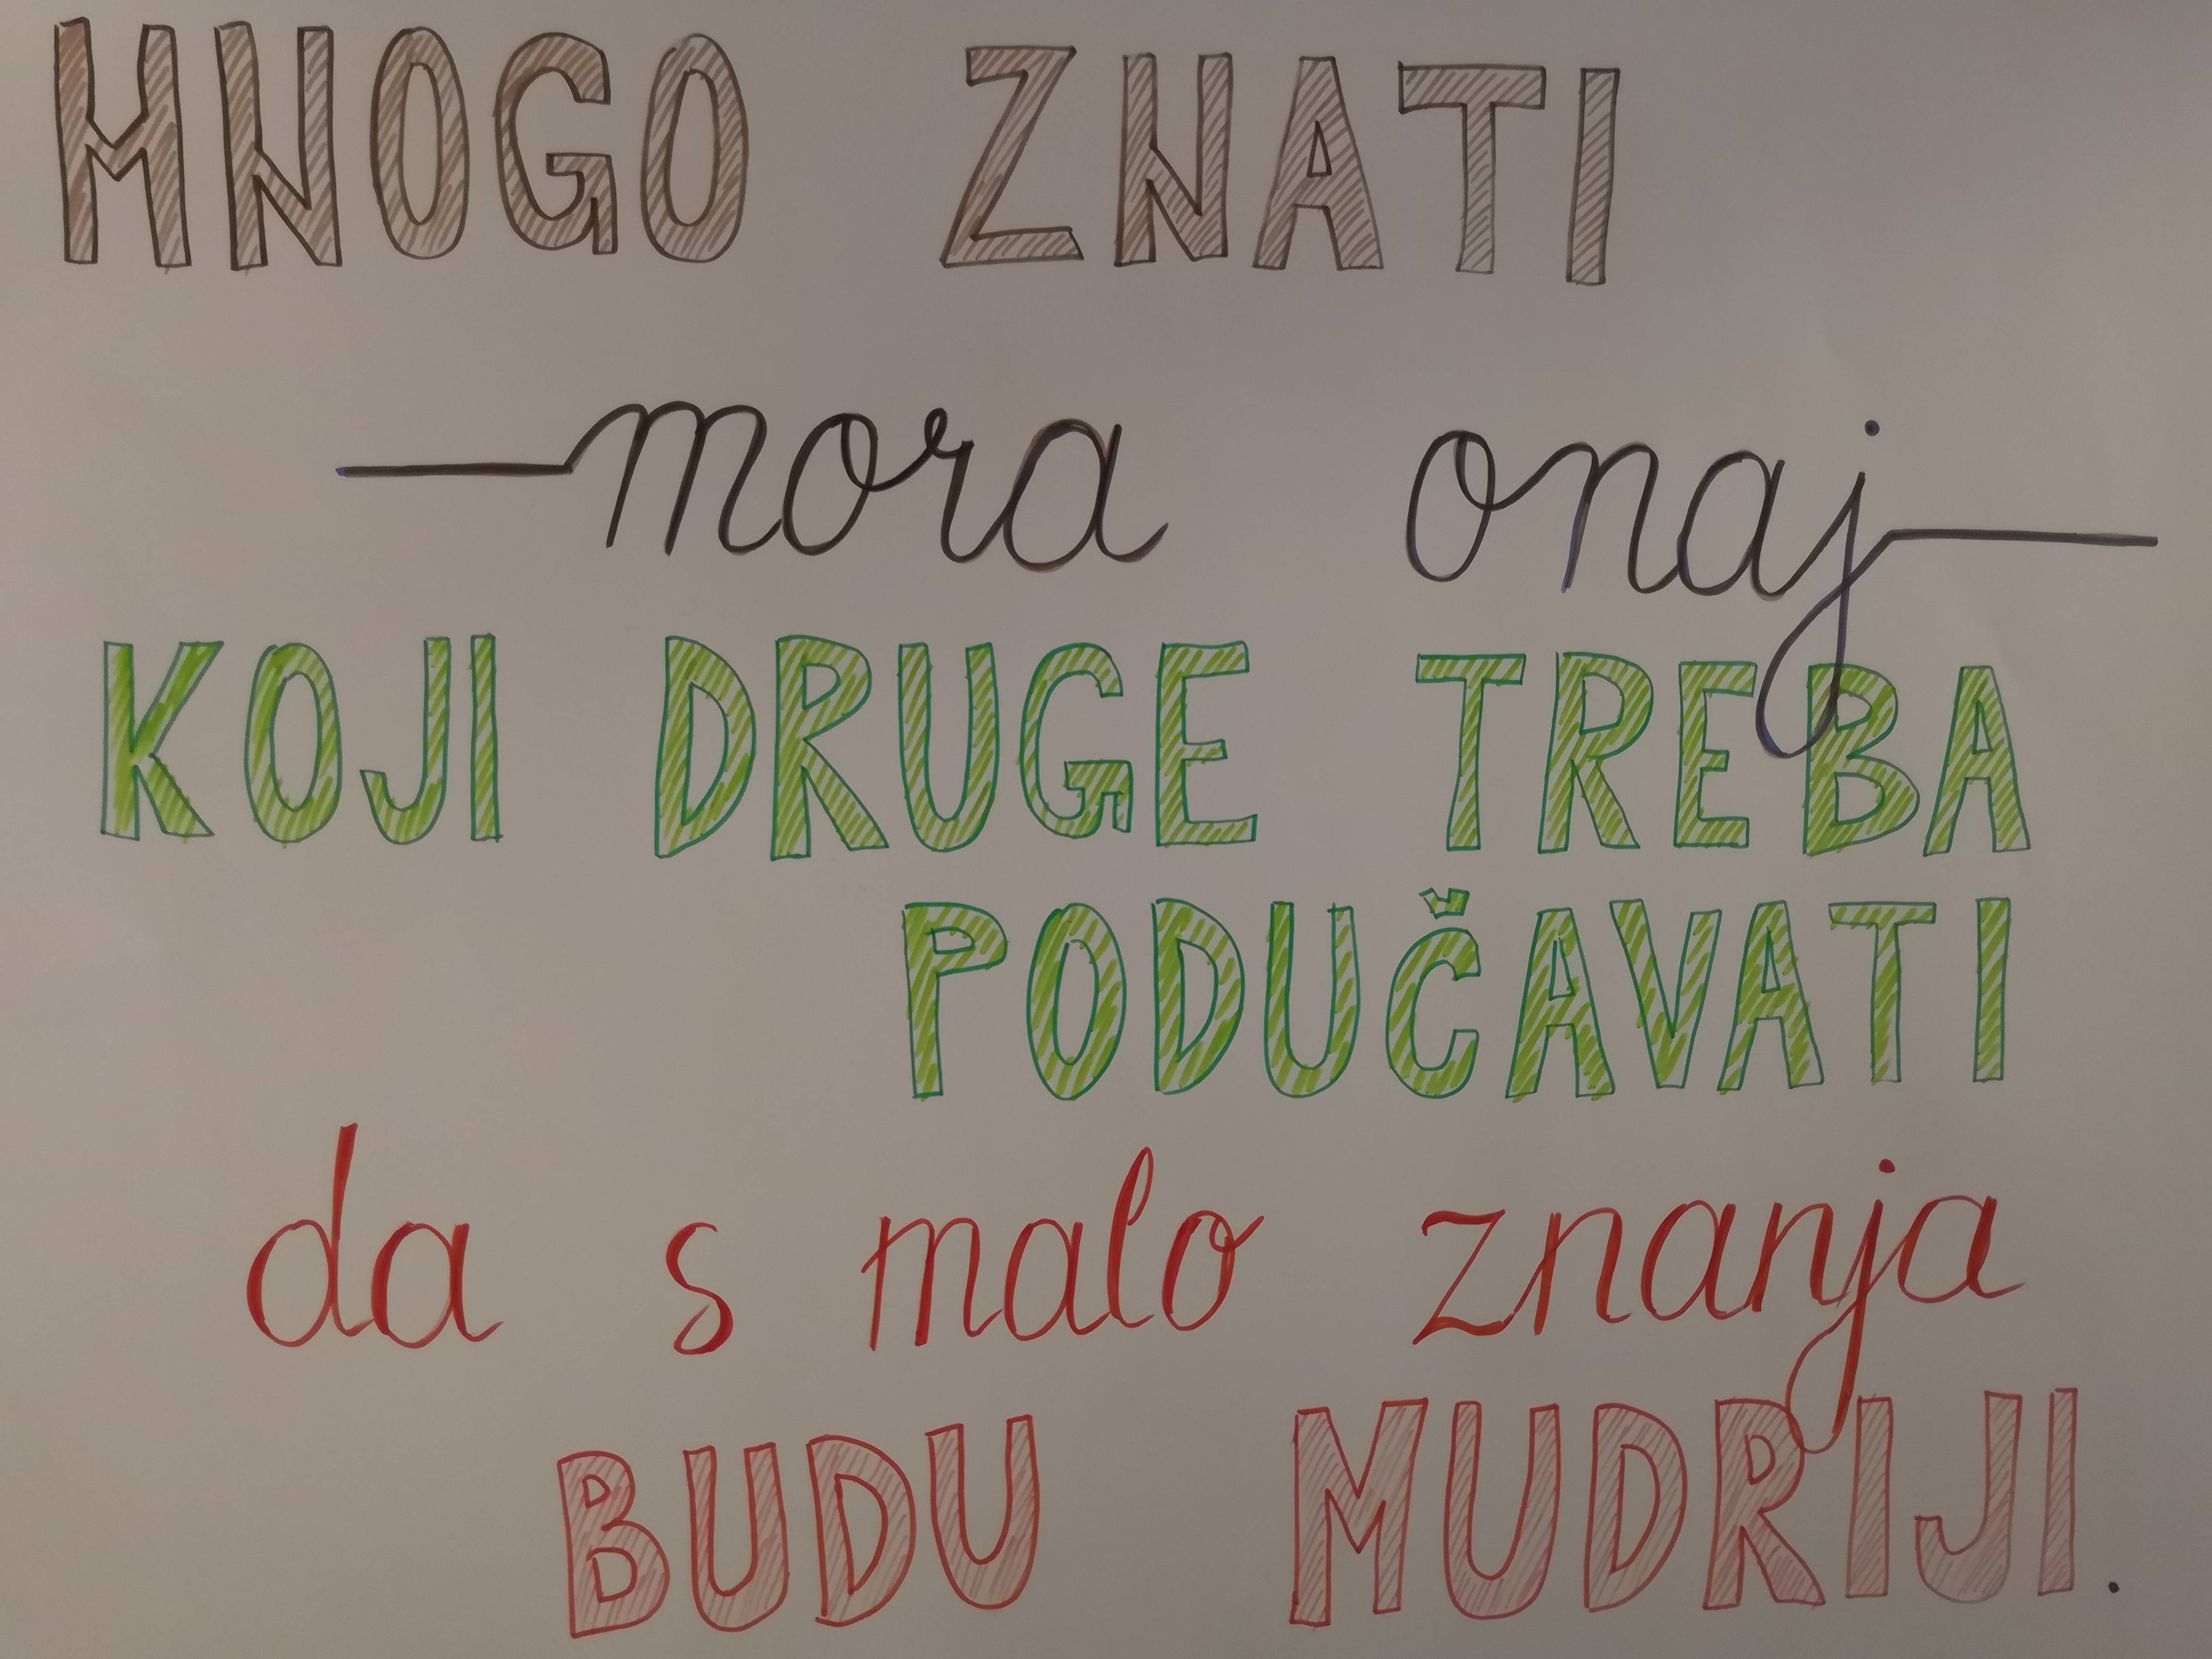 MNOGO ZNATI
mora onaj
KOJI DRUGE TREBA
PODUČAVATI
da s malo znanja
BUDU MUDRIJI.